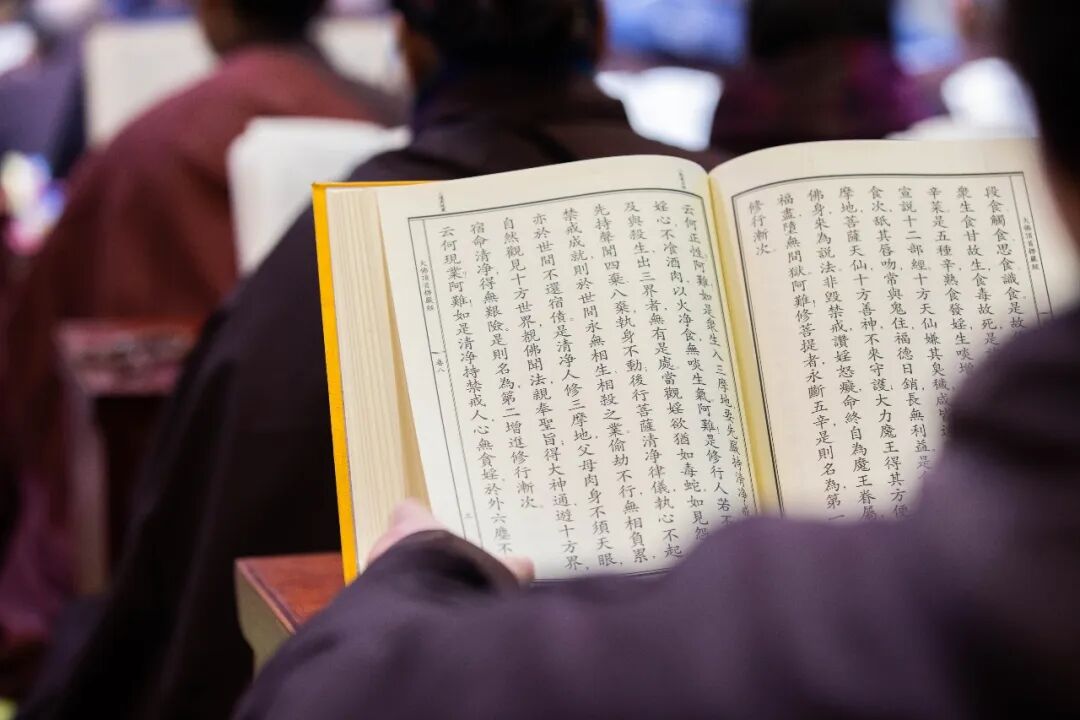 大佛頂首楞嚴經
段食觸食思食識食是故
衆生食甘故生食毒故死是
辛菜是五種辛熟食發婬生啖增
宣說十二部經十方天仙嫌其臭穢咸皆遠
食次舐其唇吻常與鬼住福德日銷長無利益是
摩地菩薩天仙十方善神不來守護大力魔王得其方
佛身來為說法非毀禁戒讚婬怒癡命終自為魔王眷屬
福盡墮無間獄阿難修菩提者永斷五辛是則名為第一
修行漸次。
云何正性阿難如是衆生入三摩地要先嚴持清淨
婬心不飡酒肉以火淨食無啖生氣阿難是修行人若不
及與殺生出三界者無有是處當觀婬欲猶如毒蛇如見怨
先持聲聞四棄八棄執身不動後行菩薩清淨律儀執心不起
禁戒成就則於世間永無相生相殺之業偷劫不行無相負累
亦於世間不還宿債是清淨人修三摩地父母肉身不須天眼
自然觀見十方世界覩佛聞法親奉聖旨得大神通遊十方界
宿命清淨得無艱險。是則名為第二增進修行漸次。
云何現業阿難如是清淨持禁戒人心無貪婬於外六塵不
大佛頂首楞嚴經
卷八
三